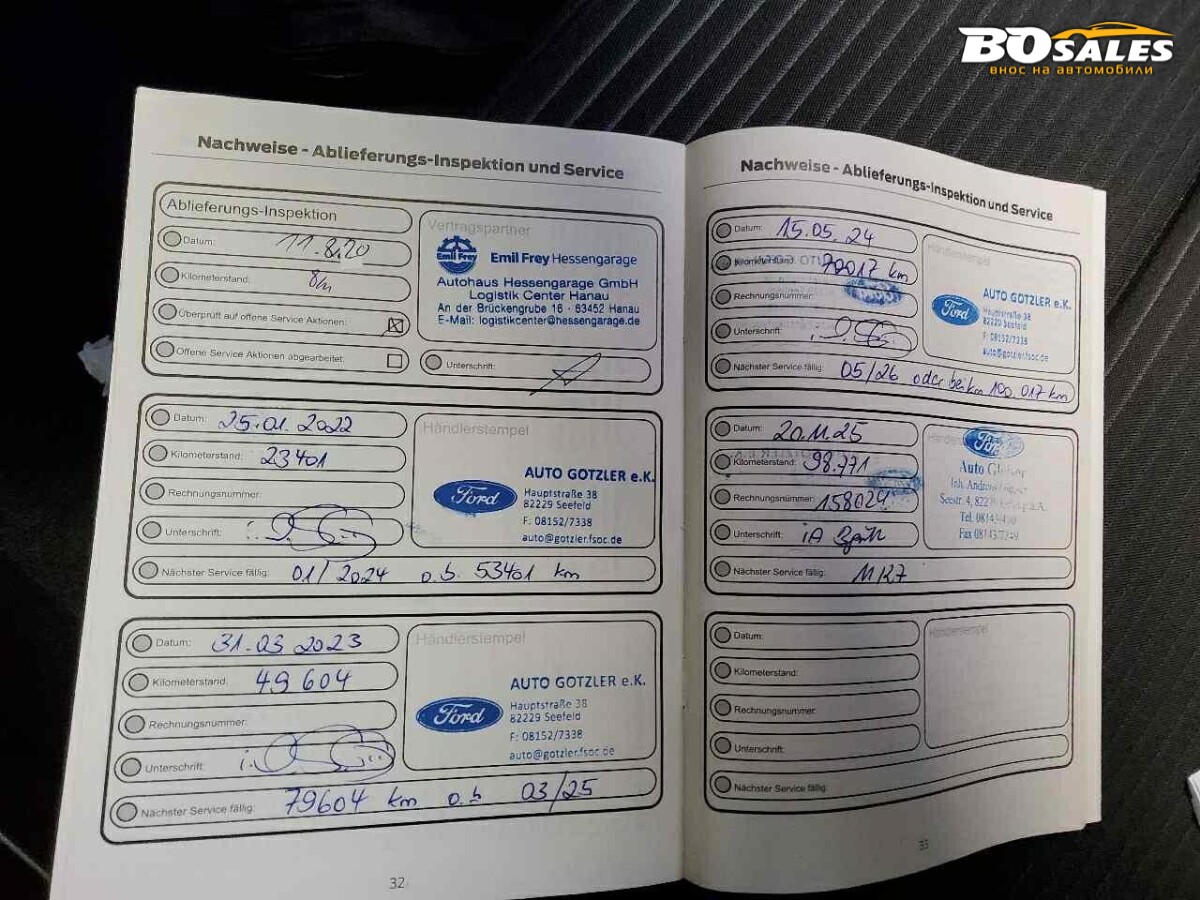 BOSALES
внос на автомобили
Nachweise - Ablieferungs-Inspektion und Service
Ablieferungs-Inspektion
Datum: 11.8.20
Kilometerstand:
Überprüft auf offene Service Aktionen:
Offene Service Aktionen abgearbeitet:
Vertragspartner
Emil Frey
Emil Frey Hessengarage
Autohaus Hessengarage GmbH
Logistik Center Hanau
An der Brückengrube 16 - 63452 Hanau
E-Mail: logistikcenter@hessengarage.de
Unterschrift:
Datum: 25.01.2022
Kilometerstand: 23401
Rechnungsnummer:
Unterschrift:
Nächster Service fällig: 01/2024 o.b. 53401 km
Händlerstempel
Ford
AUTO GOTZLER e.K.
Hauptstraße 38
82229 Seefeld
F: 08152/7338
auto@gotzler.fsoc.de
Datum: 31.03 2023
Kilometerstand: 49 604
Rechnungsnummer:
Unterschrift:
Nächster Service fällig: 79604 km o.b 03/25
Händlerstempel
Ford
AUTO GOTZLER e.K.
Hauptstraße 38
82229 Seefeld
F: 08152/7338
auto@gotzler.fsoc.de
32
Nachweise - Ablieferungs-Inspektion und Service
Datum: 15.05.24
Kilometerstand: 70017 km
Rechnungsnummer:
Unterschrift:
Nächster Service fällig: 05/26 oder bei km 100.017 km
Händlerstempel
Ford
AUTO GOTZLER e.K.
Hauptstraße 38
82229 Seefeld
F: 08152/7338
auto@gotzler.fsoc.de
Datum: 20.11.25
Kilometerstand: 98.971
Rechnungsnummer: 158029
Unterschrift: iA
Nächster Service fällig:
Ford
Auto
Inh.
Seestr. 4,
Tel.
Fax
Datum:
Kilometerstand:
Rechnungsnummer:
Unterschrift:
Nächster Service fällig:
Händlerstempel
33